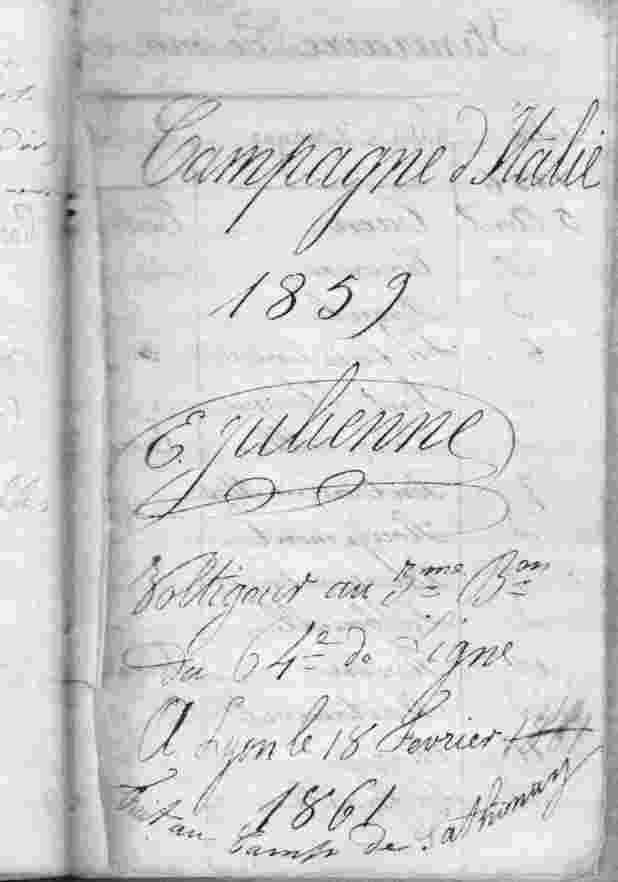 Campagne d'Italie
1859
E. Julienne
Voltigeur au 3me Bon
du 64e de Ligne
A Lyon le 18 Fevrier
1861
Fait au Camp de Sathonay